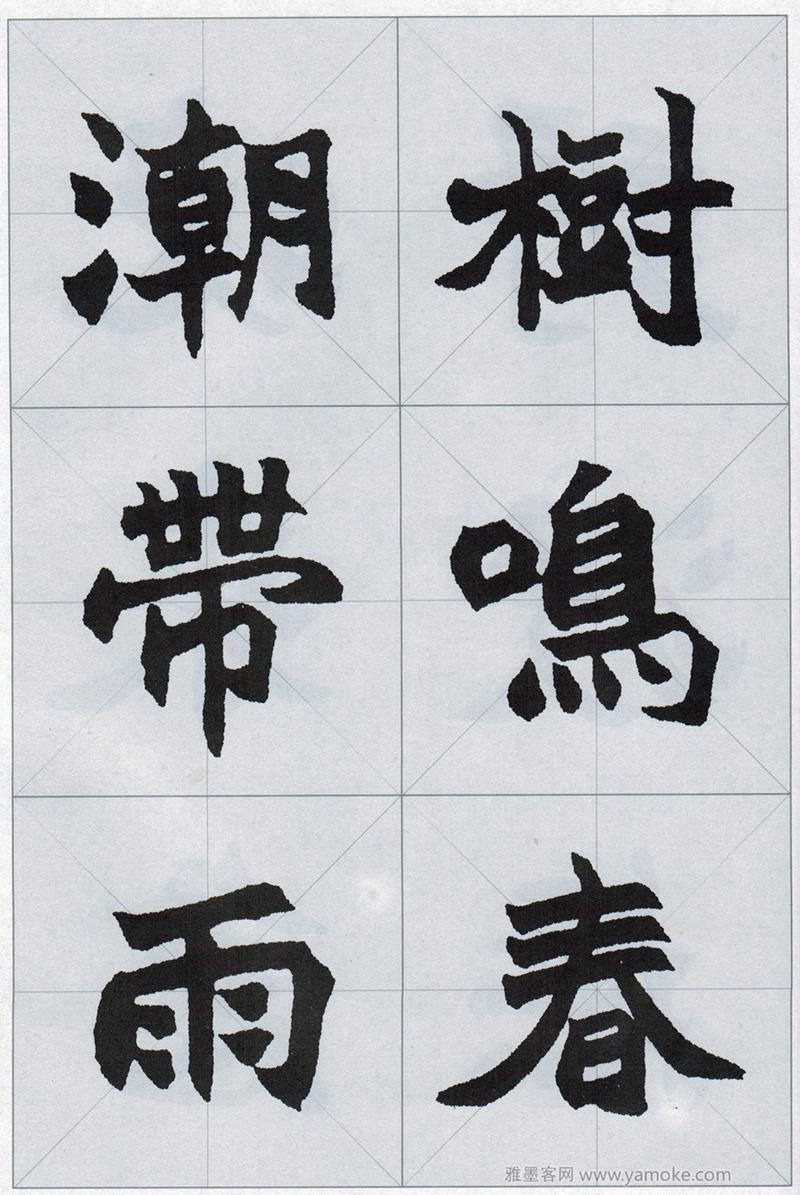 樹鳴春
潮帶雨
雅墨客网 www.yamoke.com